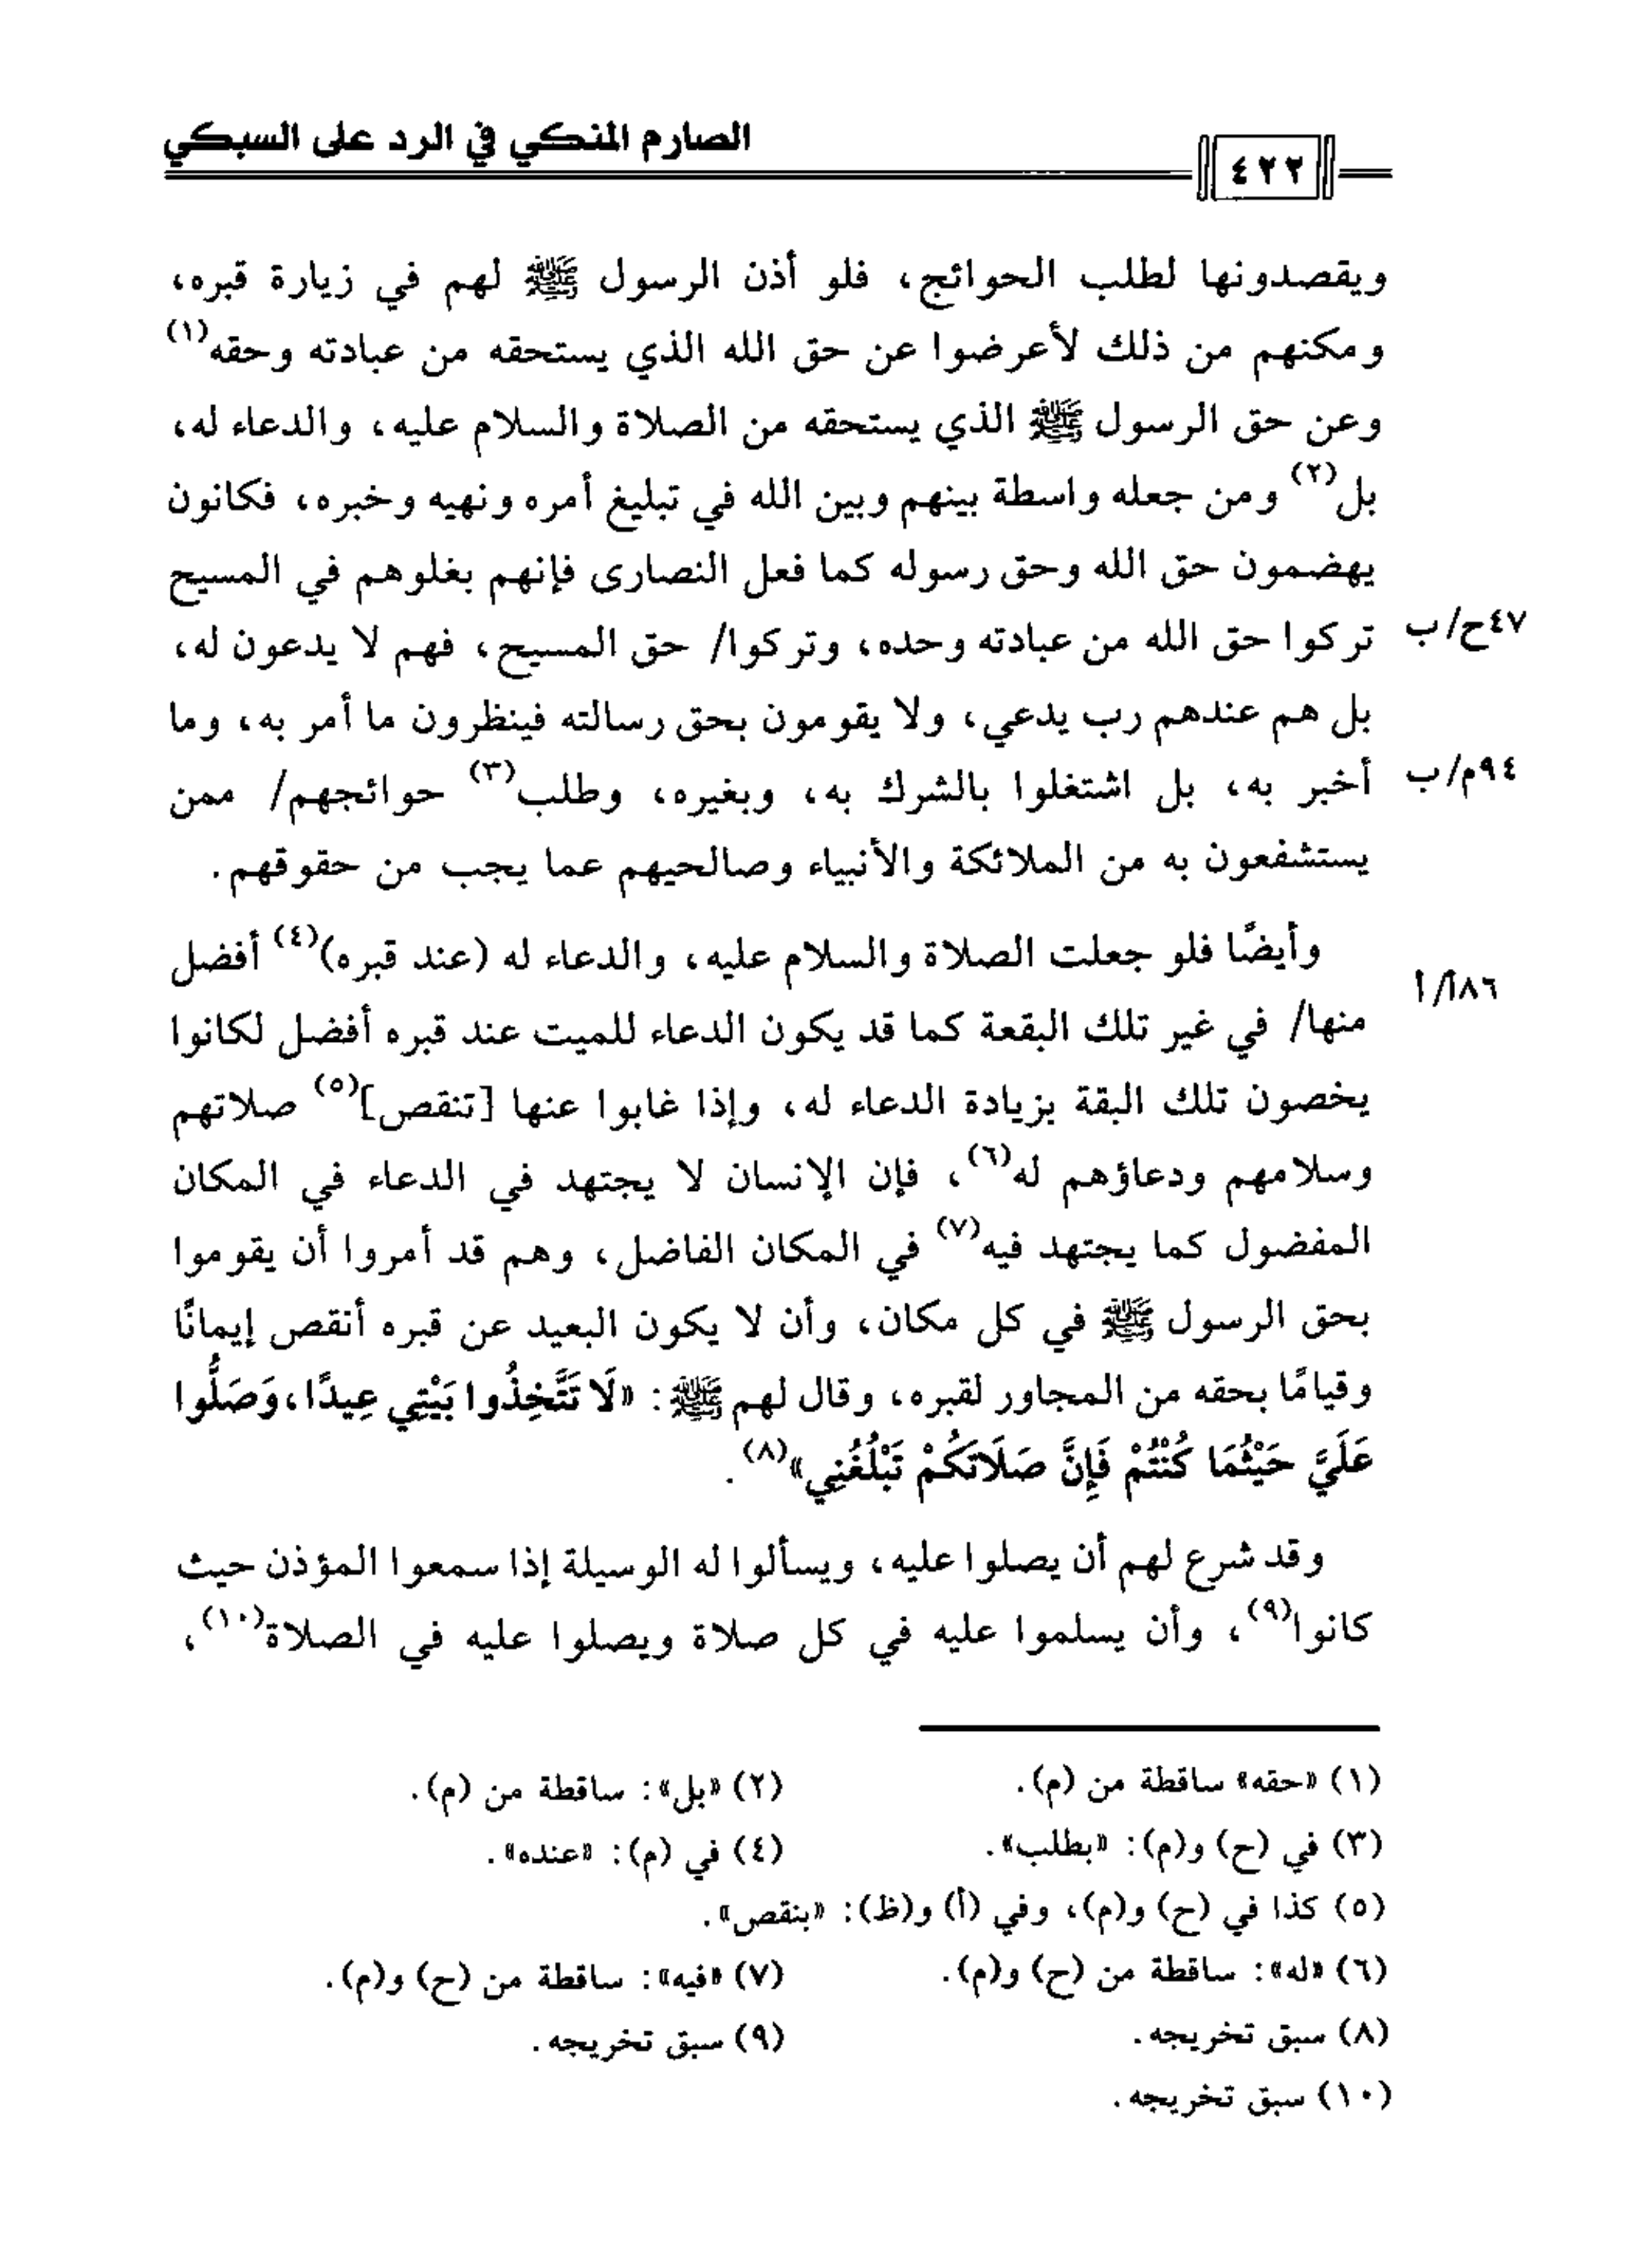 الصارم المنكي في الرد على السبكي
٤٢٢
ويقصدونها لطلب الحوائج، فلو أذن الرسول ﷺ لهم في زيارة قبره،
ومكنهم من ذلك لأعرضوا عن حق الله الذي يستحقه من عبادته وحقه(١)
وعن حق الرسول ﷺ الذي يستحقه من الصلاة والسلام عليه، والدعاء له،
بل(٢) ومن جعله واسطة بينهم وبين الله في تبليغ أمره ونهيه وخبره، فكانون
يهضمون حق الله وحق رسوله كما فعل النصارى فإنهم بغلوهم في المسيح
تركوا حق الله من عبادته وحده، وتركوا/ حق المسيح، فهم لا يدعون له،
٤٧ح/ب
بل هم عندهم رب يدعي، ولا يقومون بحق رسالته فينظرون ما أمر به، وما
أخبر به، بل اشتغلوا بالشرك به، وبغيره، وطلب(٣) حوائجهم/ ممن
٩٤م/ب
يستشفعون به من الملائكة والأنبياء وصالحيهم عما يجب من حقوقهم.
وأيضًا فلو جعلت الصلاة والسلام عليه، والدعاء له (عند قبره)(٤) أفضل
منها/ في غير تلك البقعة كما قد يكون الدعاء للميت عند قبره أفضل لكانوا
٨٦أ/أ
يخصون تلك البقة بزيادة الدعاء له، وإذا غابوا عنها [تنقص](٥) صلاتهم
وسلامهم ودعاؤهم له(٦)، فإن الإنسان لا يجتهد في الدعاء في المكان
المفضول كما يجتهد فيه(٧) في المكان الفاضل، وهم قد أمروا أن يقوموا
بحق الرسول ﷺ في كل مكان، وأن لا يكون البعيد عن قبره أنقص إيمانًا
وقيامًا بحقه من المجاور لقبره، وقال لهم ﷺ: «لَا تَتَّخِذُوا بَيْتِي عِيدًا، وَصَلُّوا
عَلَيَّ حَيْثُمَا كُنْتُمْ فَإِنَّ صَلَاتَكُمْ تَبْلُغُنِي»(٨).
وقد شرع لهم أن يصلوا عليه، ويسألوا له الوسيلة إذا سمعوا المؤذن حيث
كانوا(٩)، وأن يسلموا عليه في كل صلاة ويصلوا عليه في الصلاة(١٠)،
(١) «حقه» ساقطة من (م).
(٢) «بل»: ساقطة من (م).
(٣) في (ح) و(م): «بطلب».
(٤) في (م): «عنده».
(٥) كذا في (ح) و(م)، وفي (أ) و(ظ): «بنقص».
(٦) «له»: ساقطة من (ح) و(م).
(٧) «فيه»: ساقطة من (ح) و(م).
(٨) سبق تخريجه.
(٩) سبق تخريجه.
(١٠) سبق تخريجه.